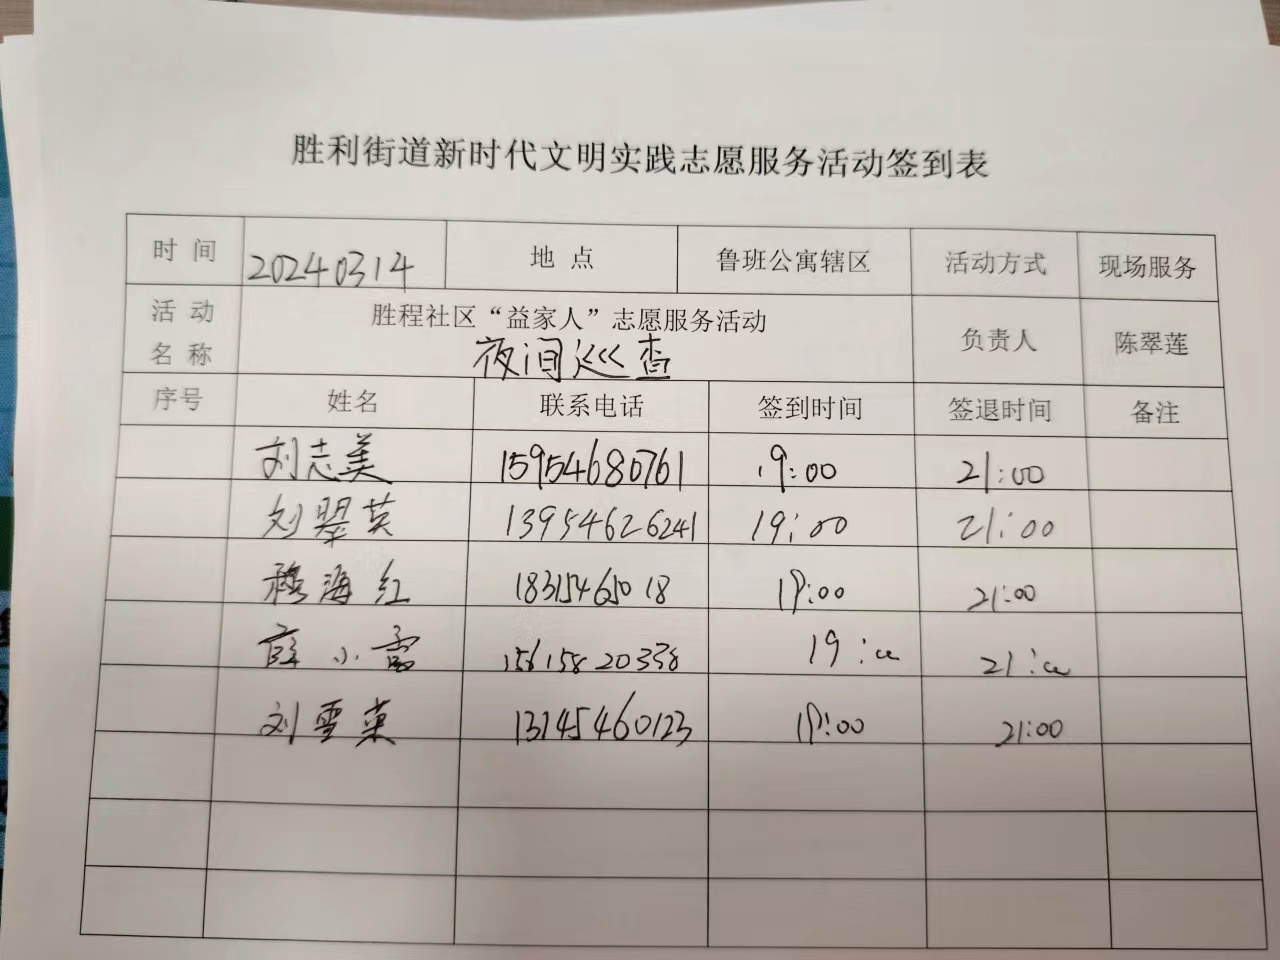 胜利街道新时代文明实践志愿服务活动签到表
时 间 20240314 地 点 鲁班公寓辖区 活动方式 现场服务
活 动 名 称 胜程社区“益家人”志愿服务活动 负责人 陈翠莲
夜间巡查
序号 姓名 联系电话 签到时间 签退时间 备注
刘志美 15954680761 19:00 21:00
刘翠英 13954626241 19:00 21:00
穆海红 18315465018 19:00 21:00
薛小雪 15615820338 19:00 21:00
刘雪菜 13145460123 19:00 21:00